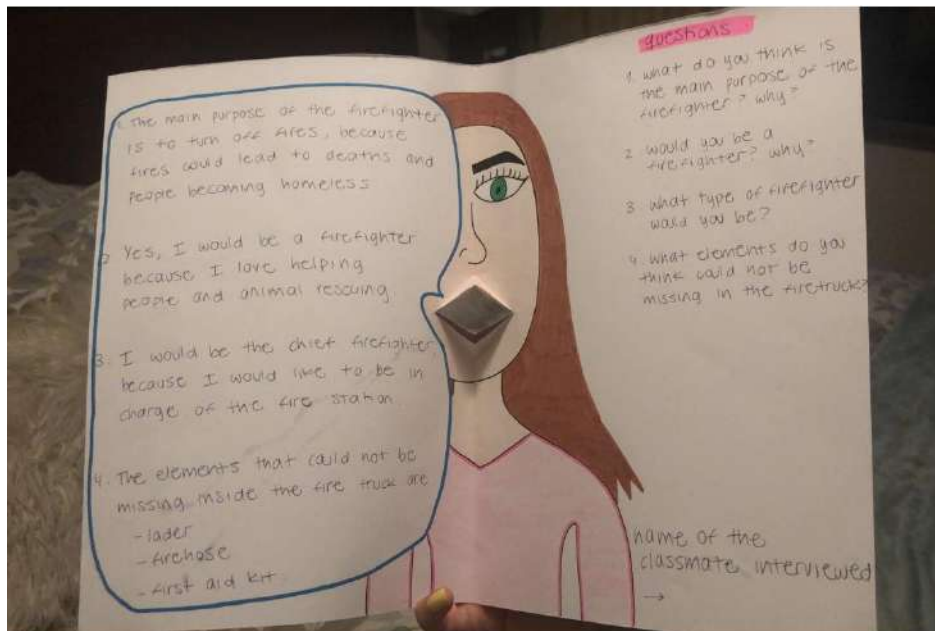 1. The main purpose of the firefighter
is to turn off fires, because
fires could lead to deaths and
people becoming homeless
2. Yes, I would be a firefighter
because I love helping
people and animal rescuing.
3. I would be the chief firefighter,
because I would like to be in
charge of the fire station.
4. The elements that could not be
missing inside the fire truck are
- lader
- firehose
- first aid kit.
questions
1. what do you think is
the main purpose of the
firefighter? why?
2. would you be a
firefighter? why?
3. what type of firefighter
would you be?
4. what elements do you
think could not be
missing in the firetruck?
name of the
classmate interviewed
→